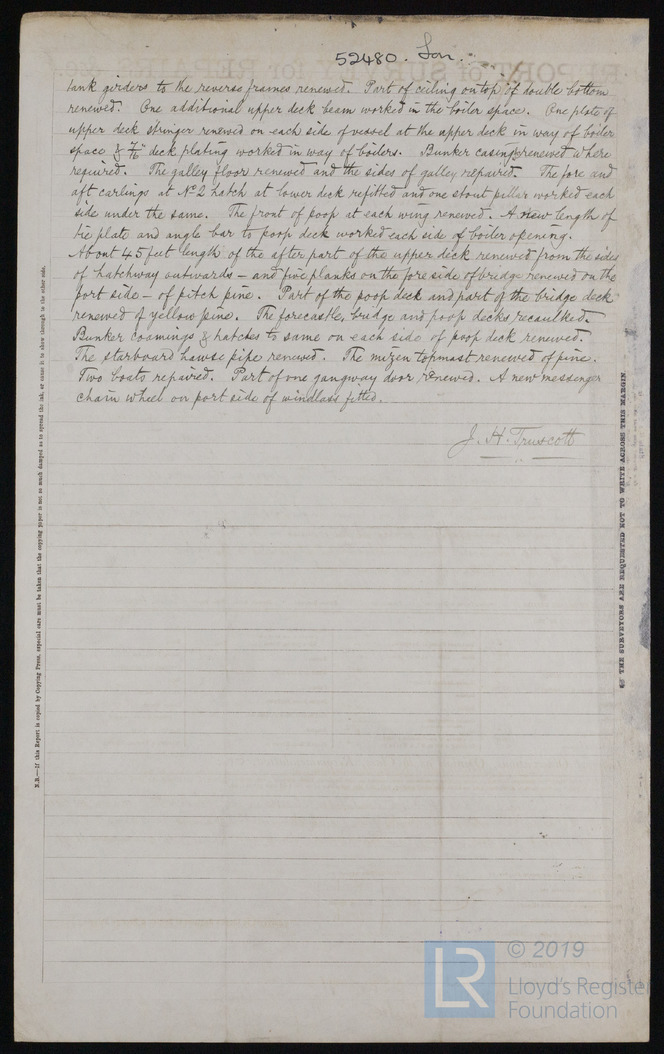 52480. Lon.
tank girders to the reverse frames renewed. Part of ceiling on top of double bottom
renewed. One additional upper deck beam worked in the boiler space. One plate of
upper deck stringer renewed on each side of vessel at the upper deck in way of boiler
space & 7/16" deck plating worked in way of boilers. Bunker casings renewed where
required. The galley floor renewed and the sides of galley repaired. The fore and
aft carlings at No 2 hatch at lower deck refitted and one stout pillar worked each
side under the same. The front of poop at each wing renewed. A new length of
tie plate and angle bar to poop deck worked each side of boiler opening.
About 45 feet length of the after part of the upper deck renewed from the sides
of hatchway outwards – and five planks on the fore side of bridge renewed on the
port side – of pitch pine. Part of the poop deck and part of the bridge deck
renewed of yellow pine. The forecastle, bridge and poop decks recaulked.
Bunker coamings & hatches to same on each side of poop deck renewed.
The starboard hawse pipe renewed. The mizen topmast renewed of pine.
Two boats repaired. Part of one gangway door renewed. A new messenger
chain wheel on port side of windlass fitted.
J. H. Truscott
N.B.—If this Report is copied by Copying Press, especial care must be taken that the copying paper is not so much damped as to spread the ink, or cause it to show through to the other side.
THE SURVEYORS ARE REQUESTED NOT TO WRITE ACROSS THIS MARGIN
LR
© 2019
Lloyd's Register
Foundation